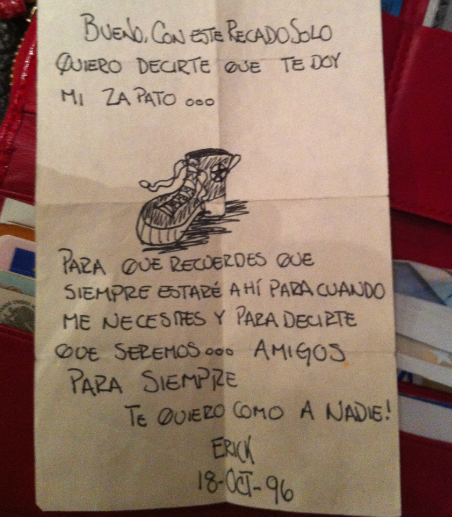 BUENO, CON ESTE RECADO SOLO
QUIERO DECIRTE QUE TE DOY
MI ZAPATO...
PARA QUE RECUERDES QUE
SIEMPRE ESTARÉ AHÍ PARA CUANDO
ME NECESITES Y PARA DECIRTE
QUE SEREMOS... AMIGOS
PARA SIEMPRE
TE QUIERO COMO A NADIE!
ERICK
18-OCT-96